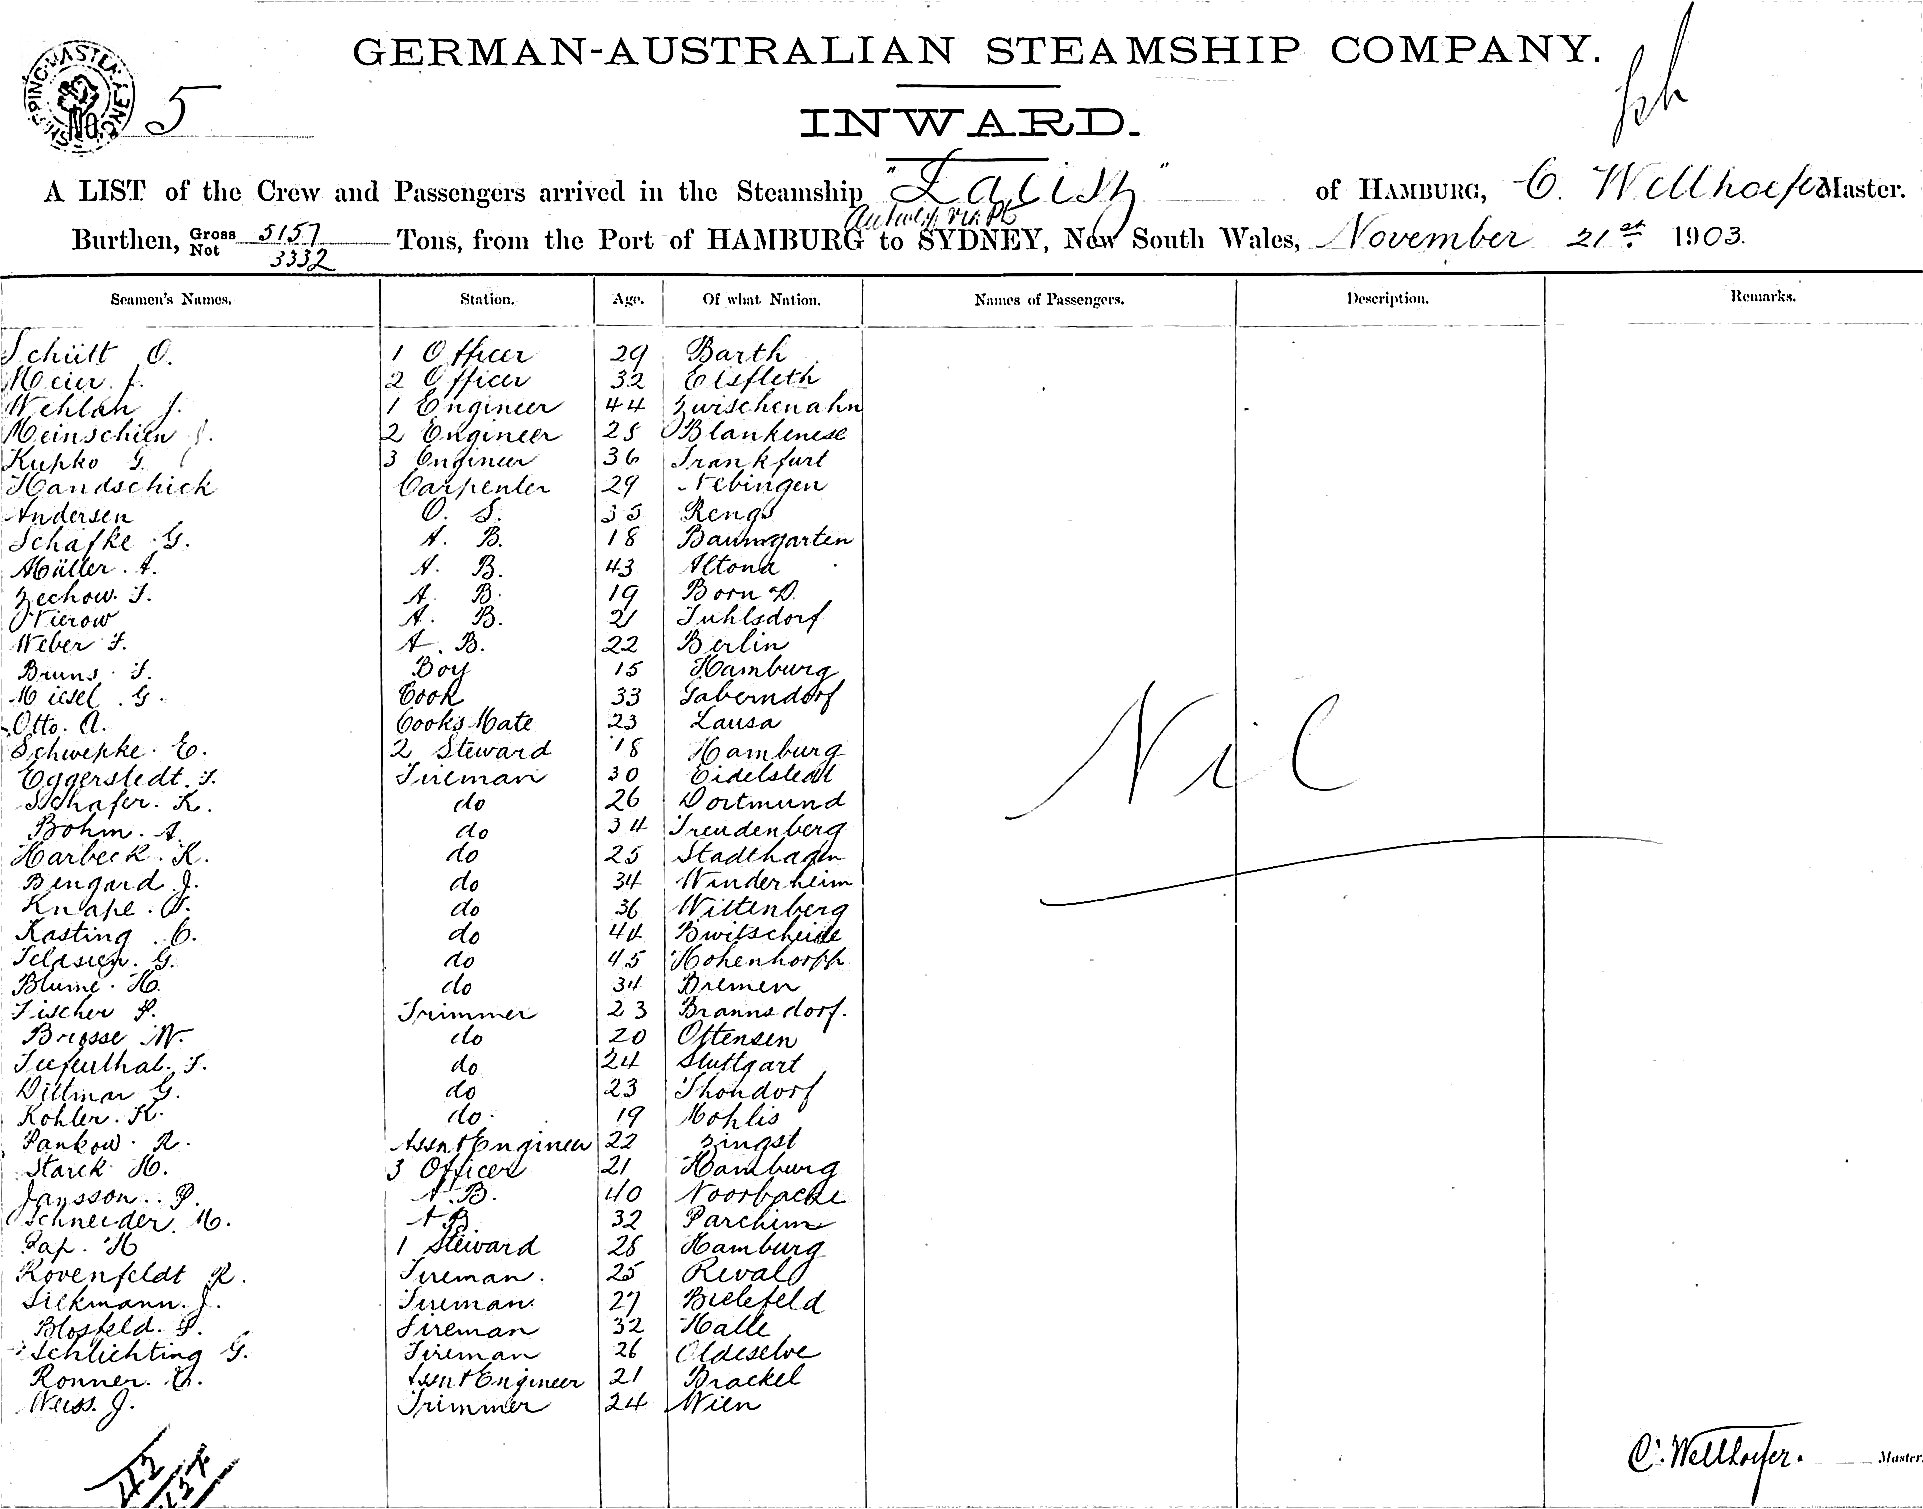 GERMAN-AUSTRALIAN STEAMSHIP COMPANY.
No. 5
INWARD.
A LIST of the Crew and Passengers arrived in the Steamship "Laeisz" of HAMBURG, C. Wellhoefer Master.
Antwerp via Pt
Burthen, Gross 5157 Tons, from the Port of HAMBURG to SYDNEY, New South Wales, November 21st 1903.
Not 3332
Seamen's Names. Station. Age. Of what Nation. Names of Passengers. Description. Remarks.
Schütt O. 1 Officer 29 Barth
Meier. 2 Officer 32 Elsfleth
Wehlan J. 1 Engineer 44 Zwischenahn
Meinschien J. 2 Engineer 28 Blankenese
Kupko G. 3 Engineer 36 Frankfurt
Handschick Carpenter 29 Nebingen
Andersen O. S. 35 Rengs
Schafke G. A. B. 18 Baumgarten
Müller. A. A. B. 43 Altona
Zechow. F. A. B. 19 Born D.
Nierow A. B. 21 Fuhlsdorf
Weber F. A. B. 22 Berlin
Bruns. F. Boy 15 Hamburg
Miesel. G. Cook 33 Gaberndorf
Otto. A. Cooks Mate 23 Lausa
Schwepke. E. 2 Steward 18 Hamburg
Eggerstedt. F. Fireman 30 Eidelstedt
Schafer. K. do 26 Dortmund
Bohm. A. do 34 Freudenberg
Harbeck. K. do 25 Stadthagen
Bengard J. do 34 Winderheim
Knape. do 36 Wittenberg
Kasting. C. do 44
G. do 45 Hohenhorst
Blume. H. do 34 Bremen
Fischer P. Trimmer 23 Brannsdorf.
Briesse W. do 20 Ottensen
Tiefenthal. F. do 24 Stuttgart
Dittmar G. do 23 Thondorf
Kohler. K. do. 19 Mohlis
Pankow. R. Assnt Engineer 22 Zingst
Starck H. 3 Officer 21 Hamburg
Jansson.. P. A. B. 40 Noorbacke
Schneider. M. A B. 32 Parchim
Pap. H 1 Steward 28 Hamburg
Rovenfeldt R. Fireman. 25 Reval
Siekmann. J. Fireman. 27 Bielefeld
Blosfeld. P. Fireman 32 Halle
Schlichting G. Fireman 26 Oldeselve
Ronner. E. Assnt Engineer 21 Brackel
Weiss. J. Trimmer 24 Wien
Nil
42
C. Wellhoefer. Master.